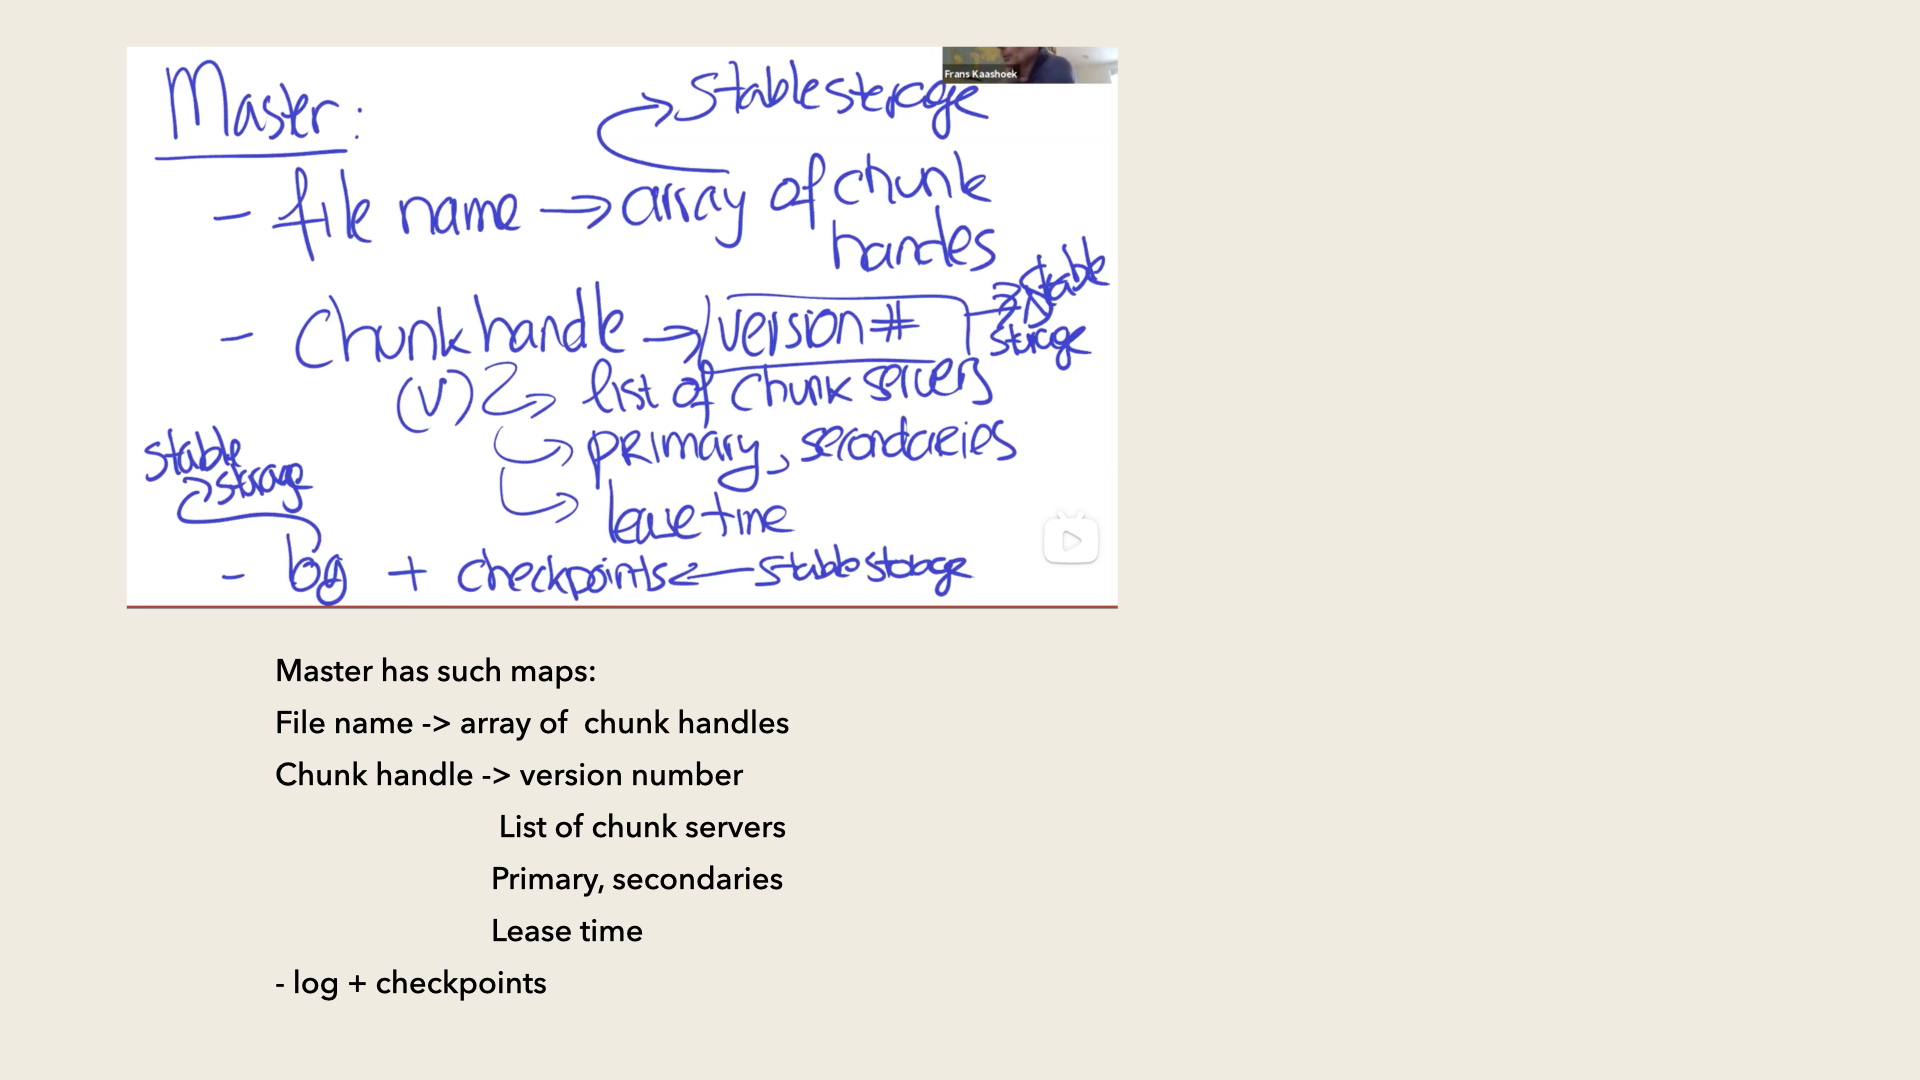 Frans Kaashoek
Master:
stable storage
- file name → array of chunk
handles
stable
storage
- Chunk handle → version #
(v) → list of chunk servers
→ primary, secondaries
→ lease time
stable
storage
- log + checkpoints ← stable storage
Master has such maps:
File name -> array of  chunk handles
Chunk handle -> version number
List of chunk servers
Primary, secondaries
Lease time
- log + checkpoints